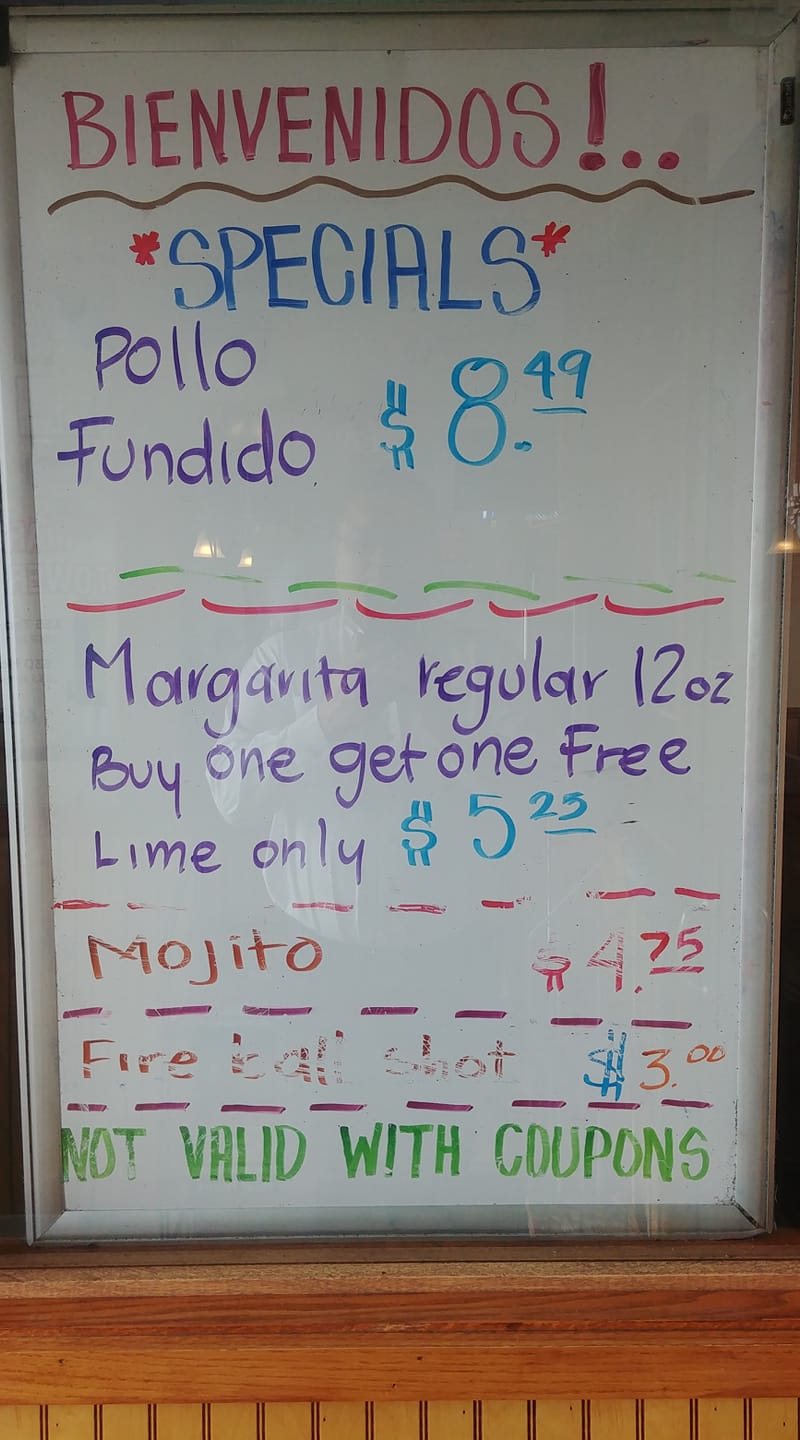 BIENVENIDOS!..
*SPECIALS*
Pollo
Fundido $8.49
Margarita regular 12oz
Buy one get one Free
Lime only $5 25
Mojito $4.75
Fire ball shot $3.00
NOT VALID WITH COUPONS